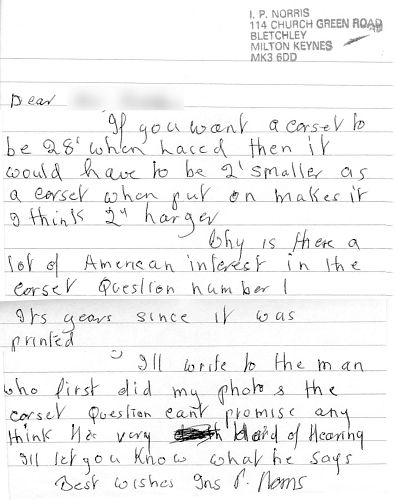 I. P. NORRIS
114 CHURCH GREEN ROAD
BLETCHLEY
MILTON KEYNES
MK3 6DD
Dear
If you want a corset to
be 28' when laced then it
would have to be 2' smaller as
a corset when put on makes it
I think 2" larger
Why is there a
lot of American interest in the
corset Question number 1
Its years since it was
printed
I'll write to the man
who first did my photos the
corset Question cant promise any
think He's very hard of Hearing
I'll let you know what he says
Best wishes P. Norris